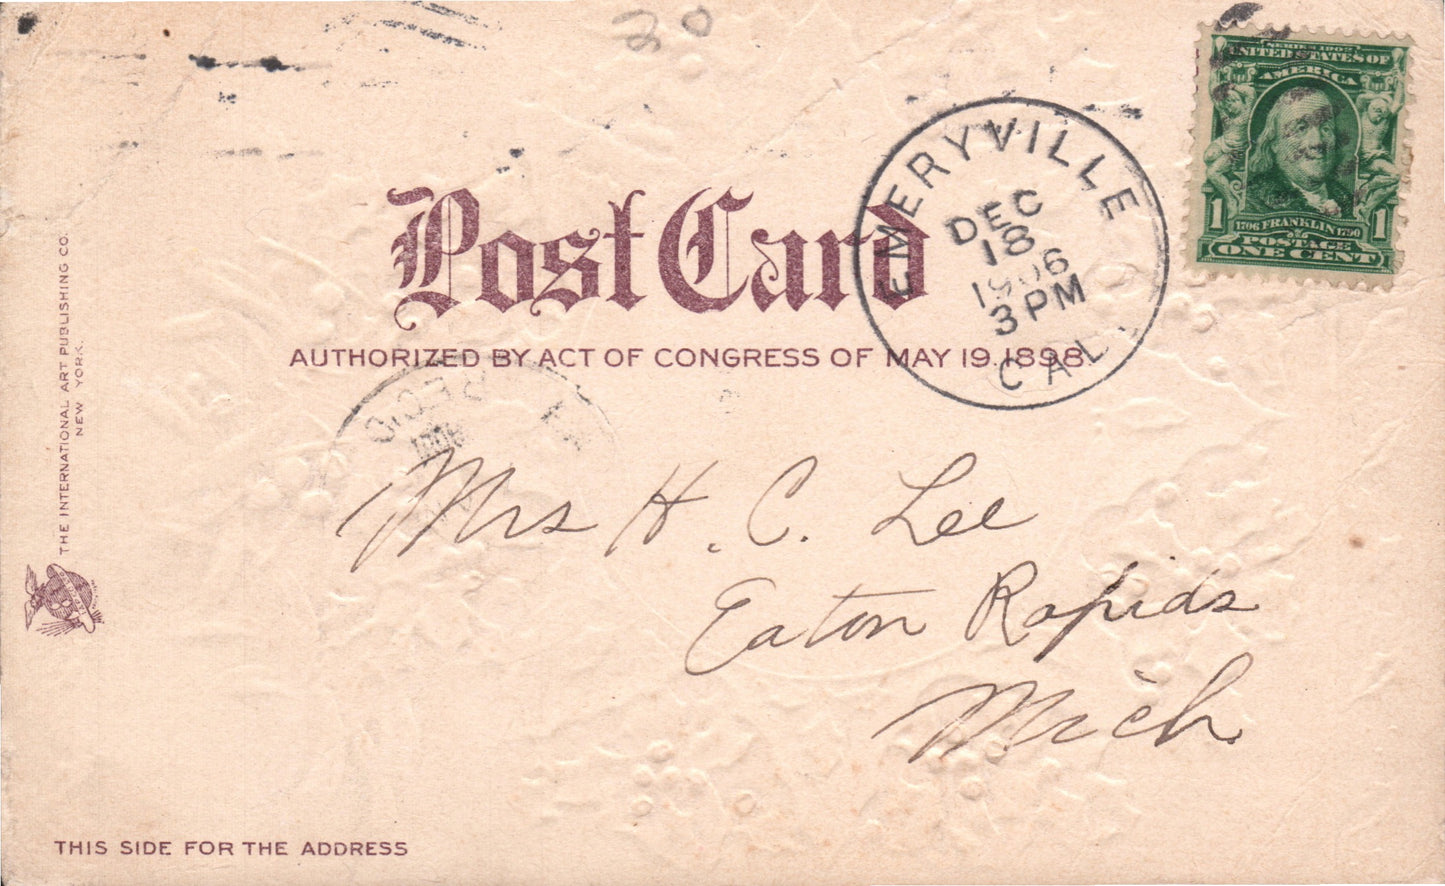 20
SERIES 1902
UNITED STATES OF
AMERICA
1 1706 FRANKLIN 1790 1
POSTAGE
ONE CENT
EMERYVILLE
DEC
18
1906
3 PM
CAL.
Post Card
AUTHORIZED BY ACT OF CONGRESS OF MAY 19, 1898.
1906
Mrs H. C. Lee
Eaton Rapids
Mich.
THE INTERNATIONAL ART PUBLISHING CO.
NEW YORK.
THIS SIDE FOR THE ADDRESS